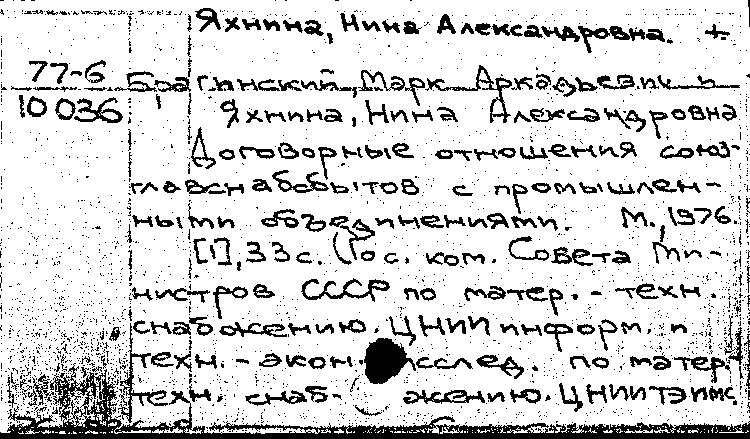 Яхнина, Нина Александровна. +
77-6
10 036
Брагинский, Марк Аркадьевич и
Яхнина, Нина Александровна
Договорные отношения союз-
главснабсбытов с промышлен-
ными объединениями. М., 1976.
[1], 33 с. (Гос. ком. Совета Ми-
нистров СССР по матер.-техн.
снабжению. ЦНИИ информ. и
техн.-экон. исслед. по матер.-
техн. снаб- жению. ЦНИИТЭИМС